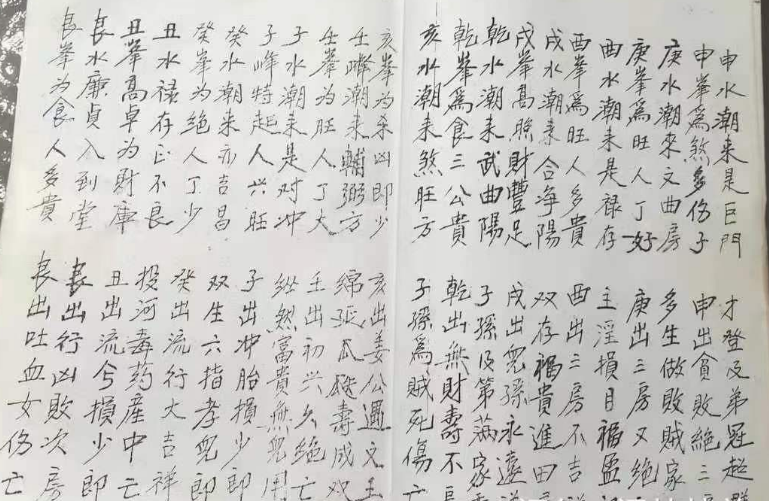 申水潮来是巨門
申峯爲煞多伤子
庚水潮來文曲房
庚峯爲旺人丁好
酉水潮来是禄存
酉峯爲旺人多貴
戍水潮来合净陽
戍峯髙照財豐足
乾水潮来武曲陽
乾峯爲食三公貴
亥水潮来煞旺方
才登及弟冠超群
申出貪敗絕三
多生做敗贼家
庚出三房又绝
主淫損目福盈
酉出三房不吉
双存福貴進田
戍出兒孫永遠
子孫及第满家
乾出無財壽不
子孫爲贼死傷亡
亥峯为杀凶即少
壬水潮来輔弼方
壬峯为旺人丁大
子水潮来是对冲
子峰特起人兴旺
癸水潮来亦吉昌
癸峯为绝人丁少
丑水禄存正不良
丑峯高卓为財庫
艮水廉貞入到堂
艮峯为食人多貴
亥出姜公遇文王
绵延瓜瓞壽成双
壬出初兴久绝亡
纵然富貴無兒用
子出冲胎損少郎
双生六指孝兒郎
癸出流行大吉祥
投河毒药産中亡
丑出流兮損少郎
艮出行凶敗次房
艮出吐血女伤亡